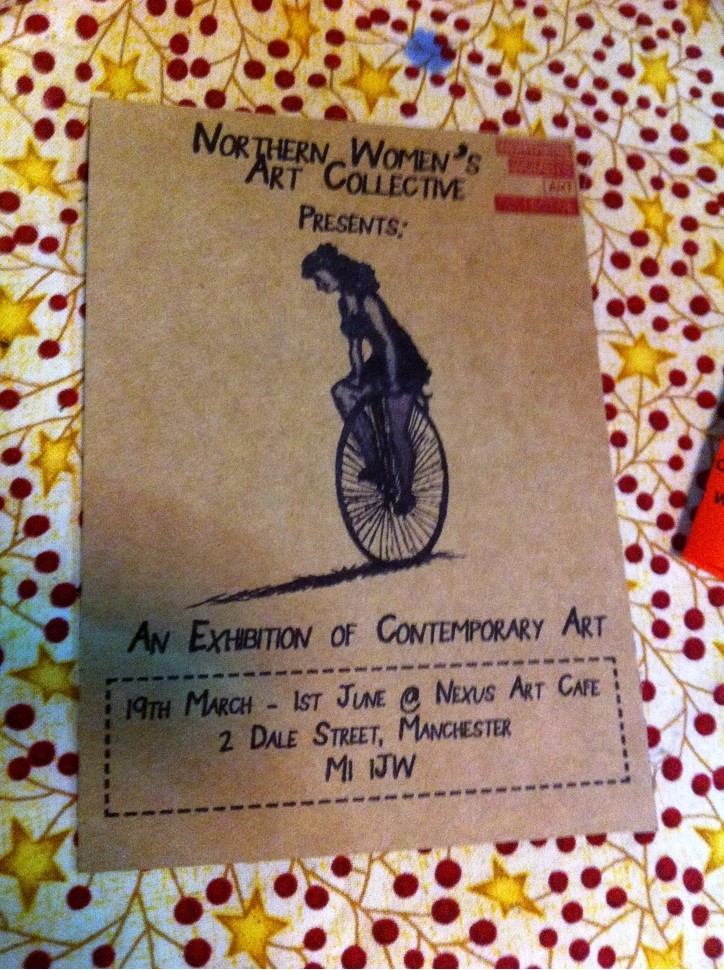 Northern Women's
Art Collective
Presents:
ART
An Exhibition of Contemporary Art
19th March - 1st June @ Nexus Art Cafe
2 Dale Street, Manchester
M1 1JW